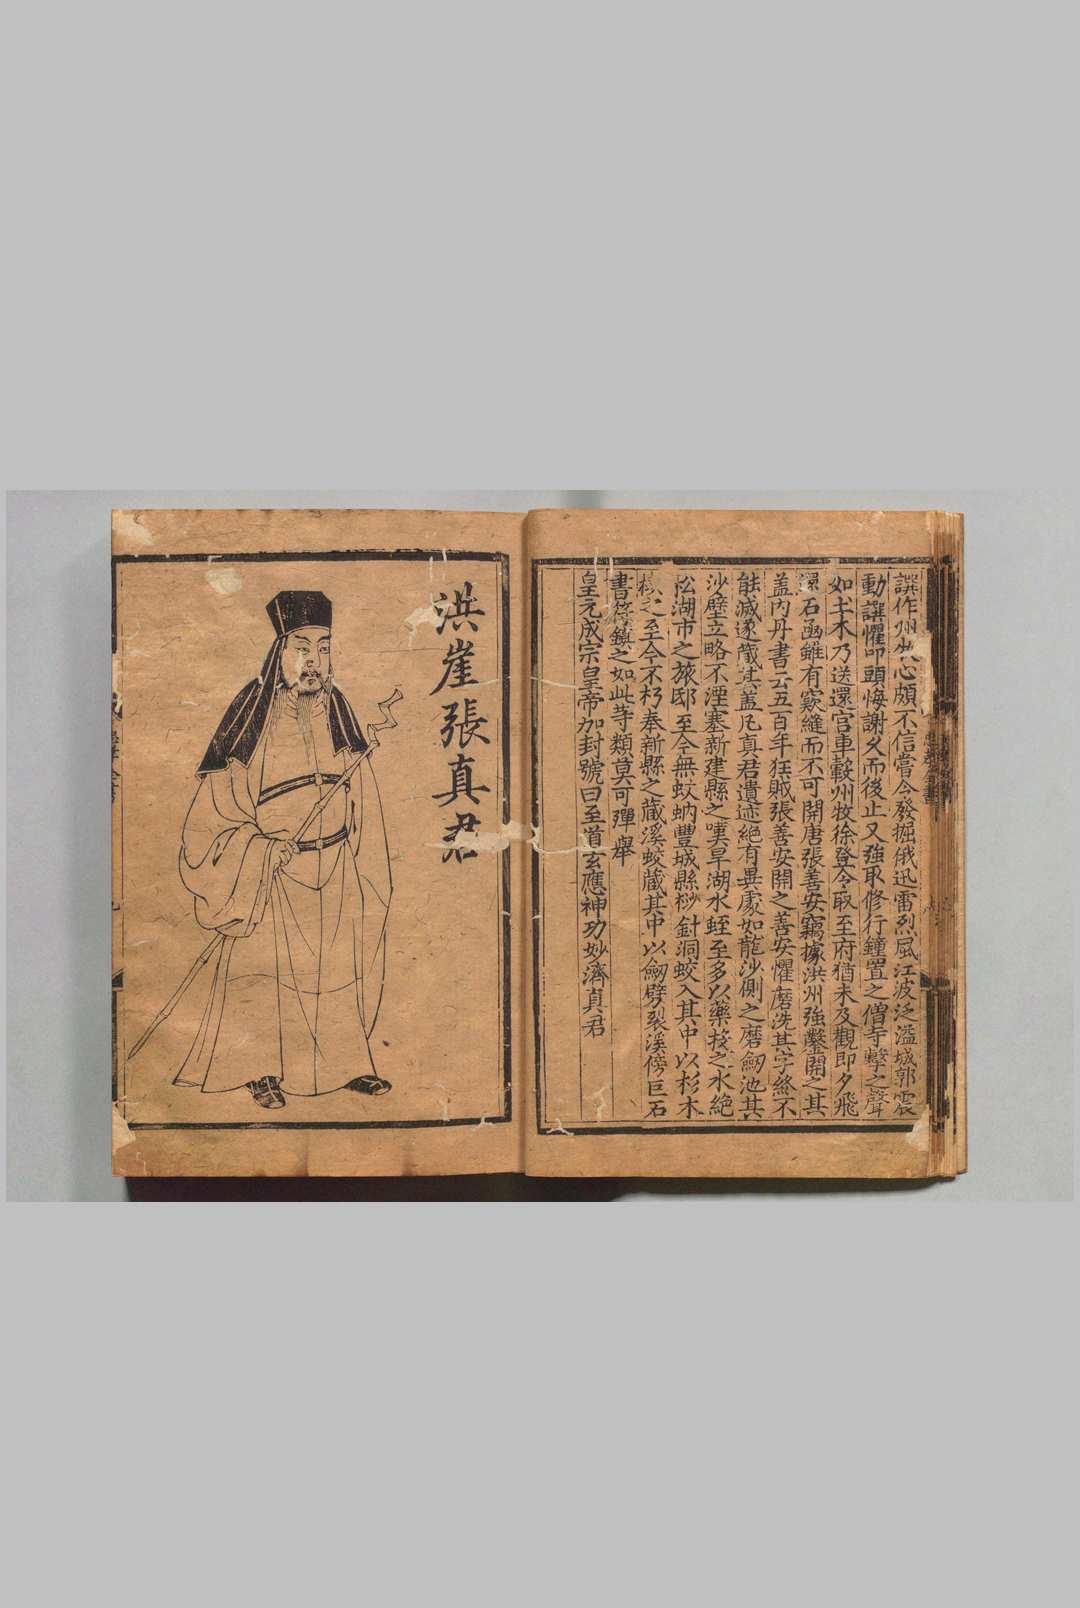 譔作州牧心頗不信嘗令發掘俄迅雷烈風江波泛溢城郭震
動譔懼叩頭悔謝久而後止又強取修行鐘置之僧寺擊之聲
如土木乃送還宮車轂州牧徐登令取至府猶未及觀即夕飛
還石函雖有竅縫而不可開唐張善安竊據洪州強鑿開之其
蓋內丹書云五百年狂賊張善安開之善安懼磨洗其字終不
能滅遂藏其蓋凡真君遺迹絕有異處如龍沙側之磨劒池其
沙壁立略不湮塞新建縣之嘆旱湖水蛭至多以藥投之水絕
松湖市之旅邸至今無蚊蚋豐城縣杪針洞蛟入其中以杉木
之至今不朽奉新縣之藏溪蛟藏其中以劒劈裂溪傍巨石
書符鎮之如此等類莫可殫舉
皇元成宗皇帝加封號曰至道玄應神功妙濟真君
洪崖張真君